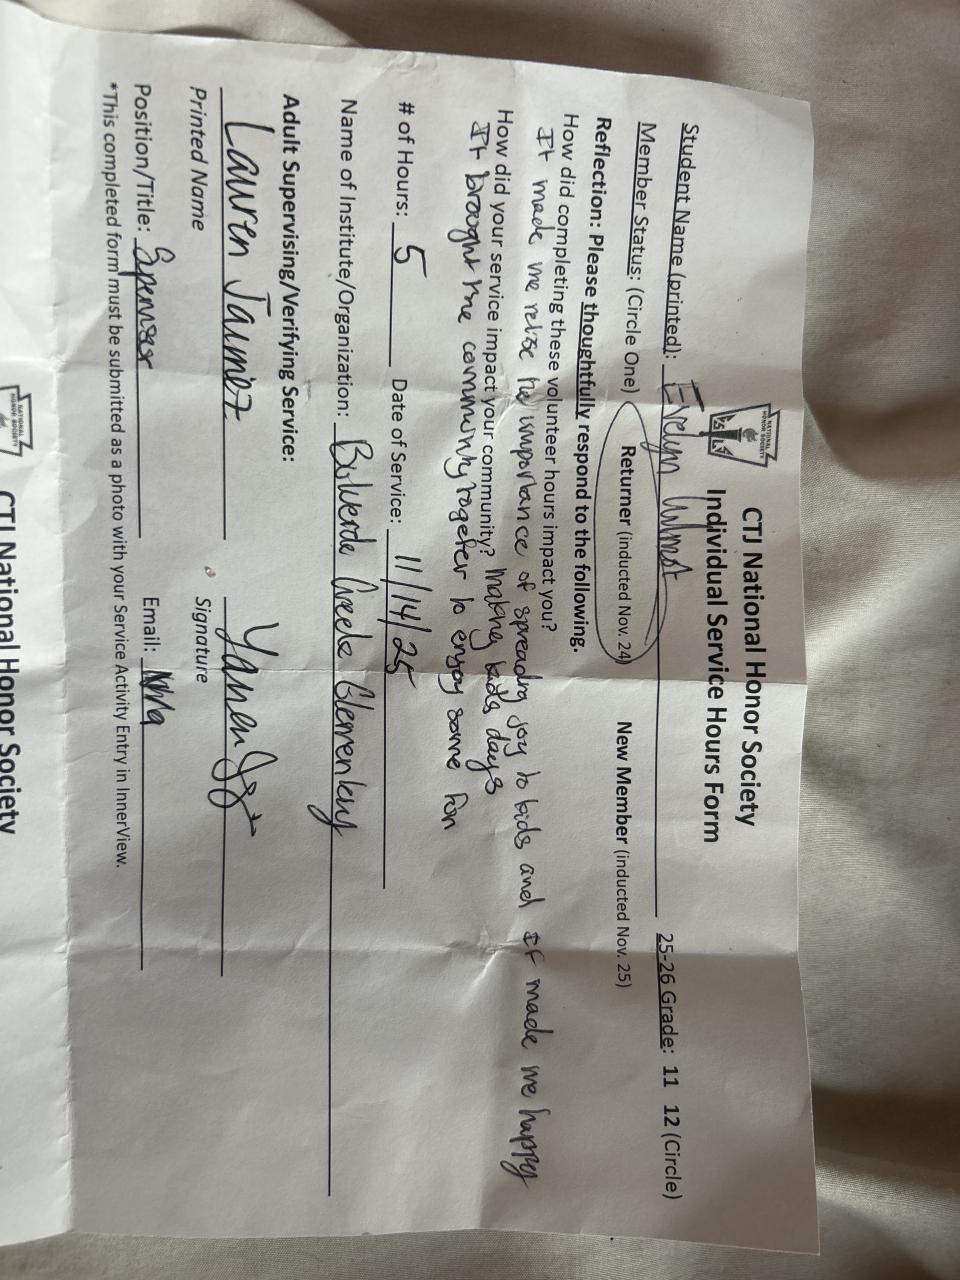 NATIONAL HONOR SOCIETY
CTJ National Honor Society
Individual Service Hours Form
Student Name (printed): Evelyn 25-26 Grade: 11 12 (Circle)
Member Status: (Circle One) Returner (inducted Nov. 24) New Member (inducted Nov. 25)
Reflection: Please thoughtfully respond to the following.
How did completing these volunteer hours impact you?
It made me relize the importance of spreading joy to kids and it made me happy
How did your service impact your community? making kids days
It brought the community togeter to enjoy some fun
# of Hours: 5 Date of Service: 11/14/25
Name of Institute/Organization:
Adult Supervising/Verifying Service:
Lauren
Printed Name Signature
Position/Title: Email:
*This completed form must be submitted as a photo with your Service Activity Entry in InnerView.
NATIONAL HONOR SOCIETY
CTJ National Honor Society